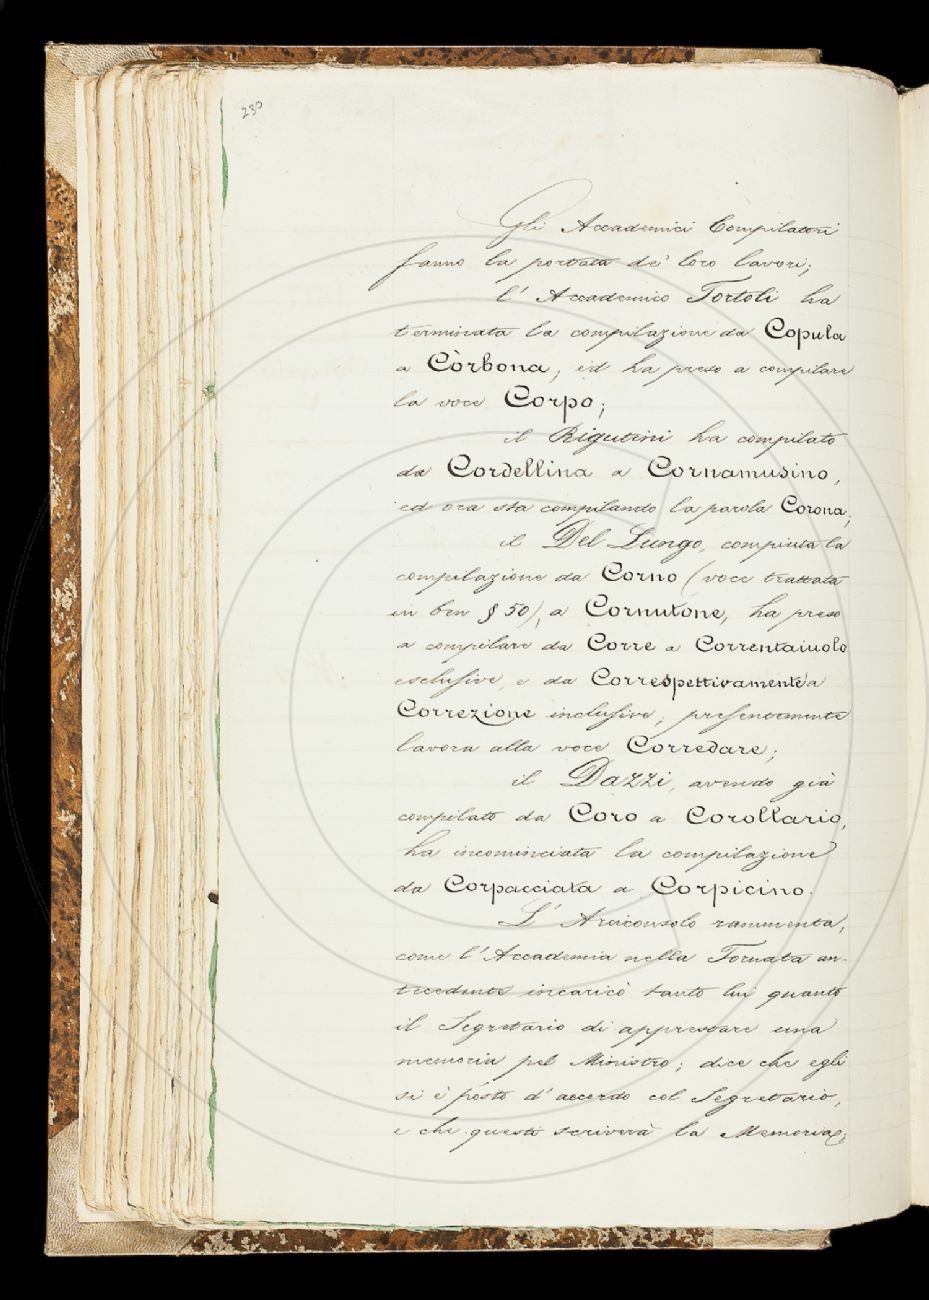 230
Gli Accademici Compilatori
fanno la portata de' loro lavori;
l' Accademico Tortoli ha
terminata la compilazione da Copula
a Còrbona; ed ha preso a compilare
la voce Corpo;
il Rigutini ha compilato
da Cordellina a Cornamusino,
ed ora sta compilando la parola Corona;
il Del Lungo, compiuta la
compilazione da Corno (voce trattata
in ben § 50), a Cornutone, ha preso
a compilare da Corre a Correntaiuolo
esclusive, e da Correspettivamente a
Correzione inclusive; presentemente
lavora alla voce Corredare;
il Dazzi, avendo già
compilato da Coro a Corollario,
ha incominciata la compilazione
da Corpacciata a Corpicino.
L' Arciconsolo rammenta,
come l' Accademia nella Tornata an-
tecedente incaricò tanto lui quanto
il Segretario di apprestare una
memoria pel Ministro; dice che egli
si è posto d' accordo col Segretario,
e che questi scriverà la Memoria;